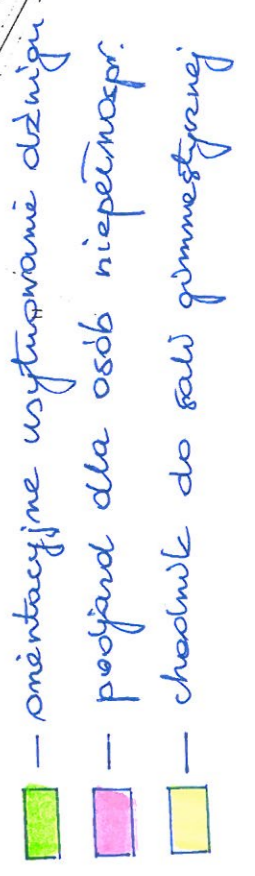 — orientacyjne usytuowanie dźwigu
— podjazd dla osób niepełnospr.
— chodnik do sali gimnastycznej